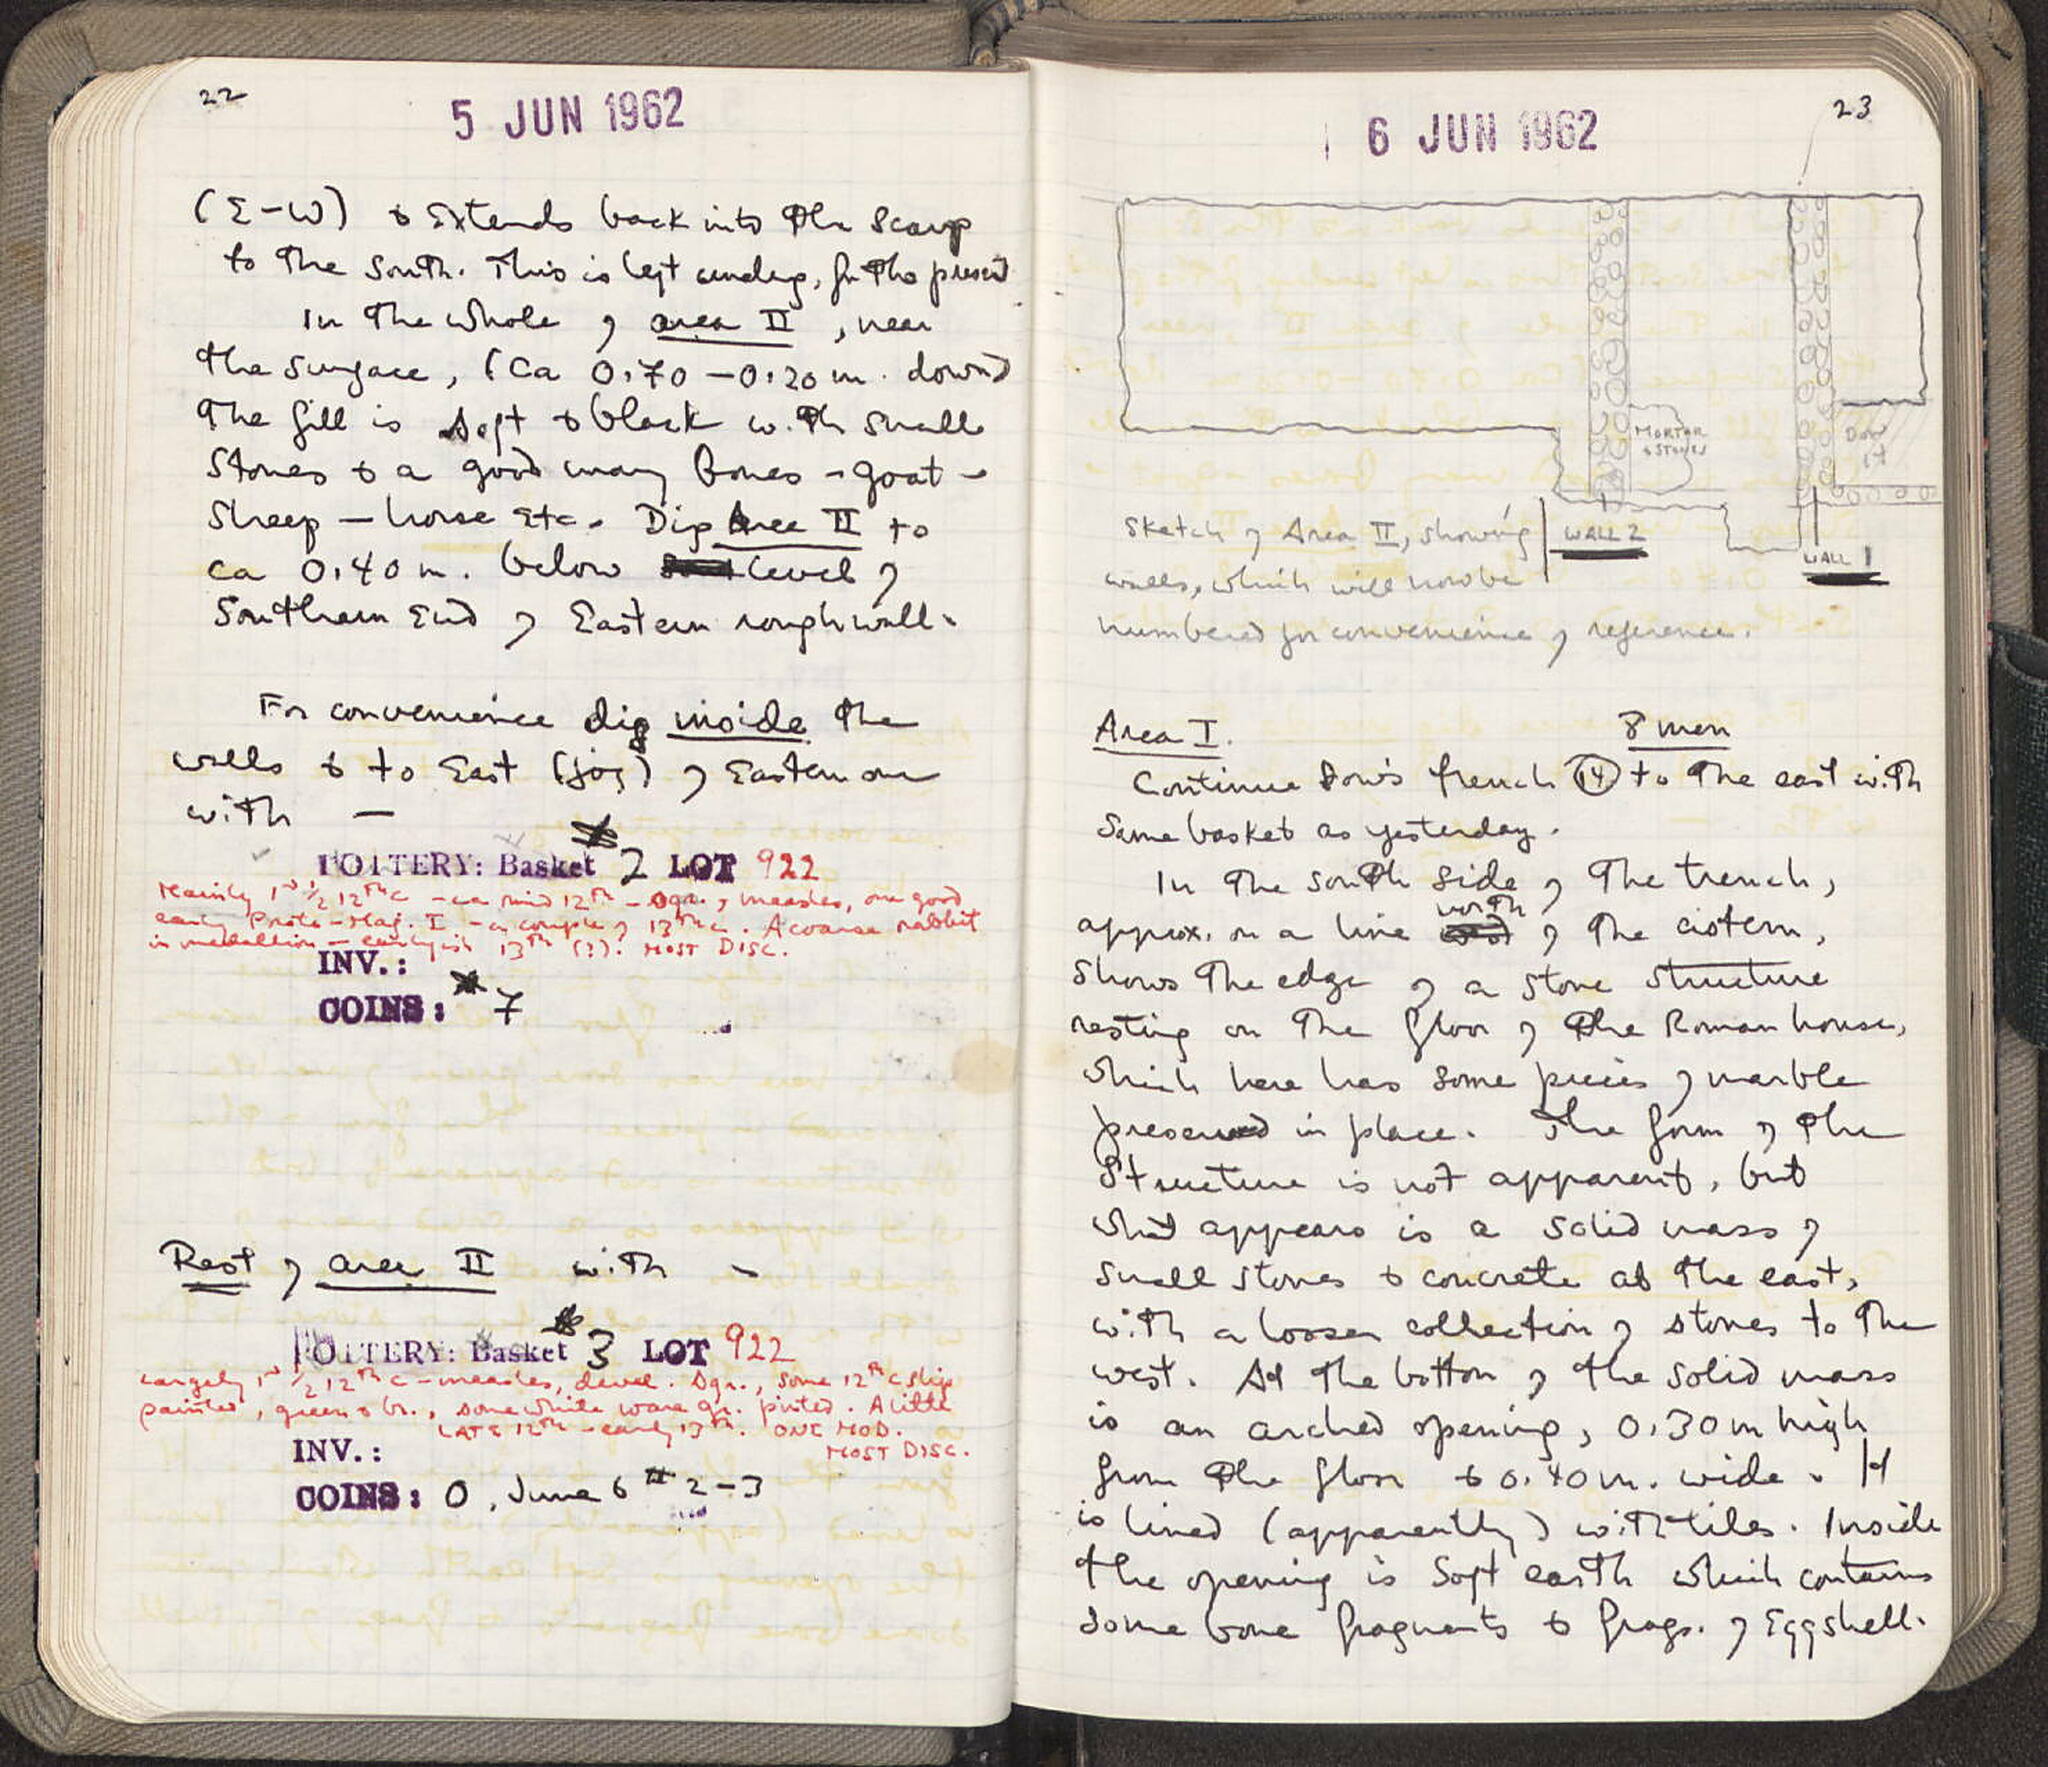 22
5 JUN 1962
(E-W) & extends back into the scarp
to the south. This is left undug, for the present
In the whole of area II, near
the surface, (ca 0.70-0.20 m. down)
the fill is soft & black with small
stones & a good many bones - goat -
sheep - horse etc. Dig Area II to
ca 0.40 m. below level of
Southern End of Eastern rough wall.
For convenience dig inside the
walls & to East (jog) of Eastern one
with —
POTTERY: Basket # 2 LOT 922
Mainly 1st 1/2 12th c - ca mid 12th - Sgr., measles, one good
early Proto-Maj. I - a couple of 13th c. A coarse rabbit
in medallion - earlyish 13th (?). MOST DISC.
INV.:
COINS: # 7
Rest of area II with -
POTTERY: Basket # 3 LOT 922
Largely 1st 1/2 12th c - measles, devel. Sgr., some 12th c slip
painted, green & br., some white ware gr. ptd. A little
LATE 12th - early 13th. ONE MOD.
MOST DISC.
INV.:
COINS: 0, June 6 # 2-3
23
6 JUN 1962
MORTAR
& STONES
DOW
14
Sketch of Area II, showing
WALL 2
WALL 1
walls, which will now be
numbered for convenience of reference.
Area I. 8 men
Continue Dow's trench (14) to the east with
same basket as yesterday.
In the south side of the trench,
north
approx. on a line of the cistern,
shows the edge of a stone structure
resting on the floor of the Roman house,
which here has some pieces of marble
preserved in place. The form of the
structure is not apparent, but
what appears is a solid mass of
small stones & concrete at the east,
with a looser collection of stones to the
west. At the bottom of the solid mass
is an arched opening, 0.30 m high
from the floor & 0.40 m. wide. It
is lined (apparently) with tiles. Inside
the opening is soft earth which contains
some bone fragments & frags. of Eggshell.